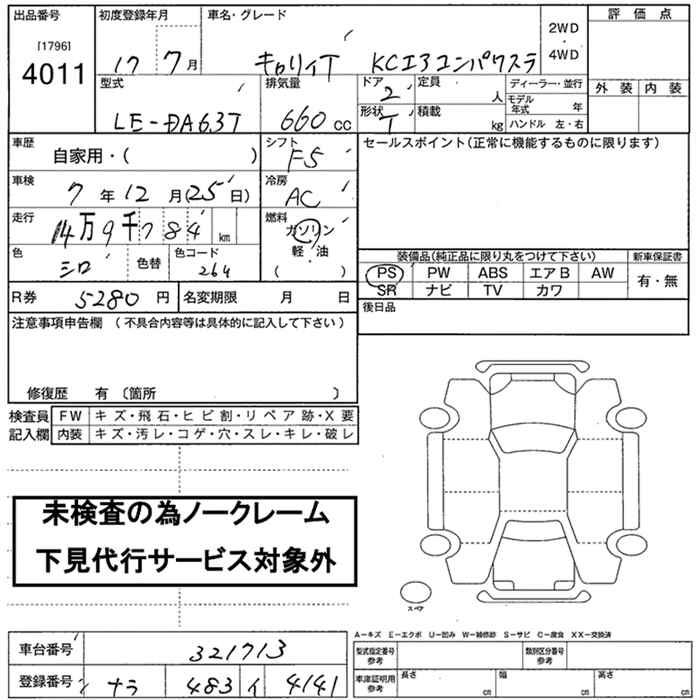 出品番号 初度登録年月 車名・グレード 評価点
[1796]
4011
17 7月 キャリィT KCエアコンパワステ 2WD・4WD
型式 排気量 ドア 定員 ディーラー・並行 外装 内装
LE-DA63T 660cc 2 人 モデル年式 年
形状 T 積載 kg ハンドル 左・右
車歴 自家用・( ) シフト F5 セールスポイント(正常に機能するものに限ります)
車検 7年12月(25日) 冷房 AC
走行 14万9千784km 燃料 ガソリン 軽・油 ( )
色 シロ 色替 色コード 264
装備品(純正品に限り丸をつけて下さい) 新車保証書
PS PW ABS エアB AW 有・無
SR ナビ TV カワ
R券 5280円 名変期限 月 日 後日品
注意事項申告欄 (不具合内容等は具体的に記入して下さい)
修復歴 有 〔箇所 〕
検査員記入欄 FW キズ・飛石・ヒビ割・リペア跡・X要
内装 キズ・汚レ・コゲ・穴・スレ・キレ・破レ
未検査の為ノークレーム
下見代行サービス対象外
スペア
A−キズ E−エクボ U−凹み W−補修跡 S−サビ C−腐食 XX−交換済
車台番号 321713 型式指定番号 参考 類別区分番号 参考
登録番号 ナラ 483 イ 4141 車庫証明用 参考 長さ cm 幅 cm 高さ cm